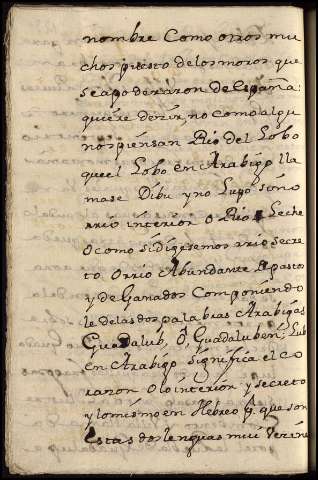 nombre Como otros mu
chos puesto de los moros que
se apoderaron de España:
quiere dezir, no como algu
nos piensan Rio del Lobo
que el Lobo en Arabigo lla
mase Dibu y no Lupo sino
rrio interior o Rio Leche
o como si dixesemos rrio secre
to. O rrio Abundante de pastos
y de Ganados Componiendo
le de las dos palabras Arabigas
Guadalub, Ô, Guadaluben; Lub
en Arabigo significa el co
razon o lo interior y secreto
y lo mismo en Hebreo q. que son
estas dos lenguas mui vezinas